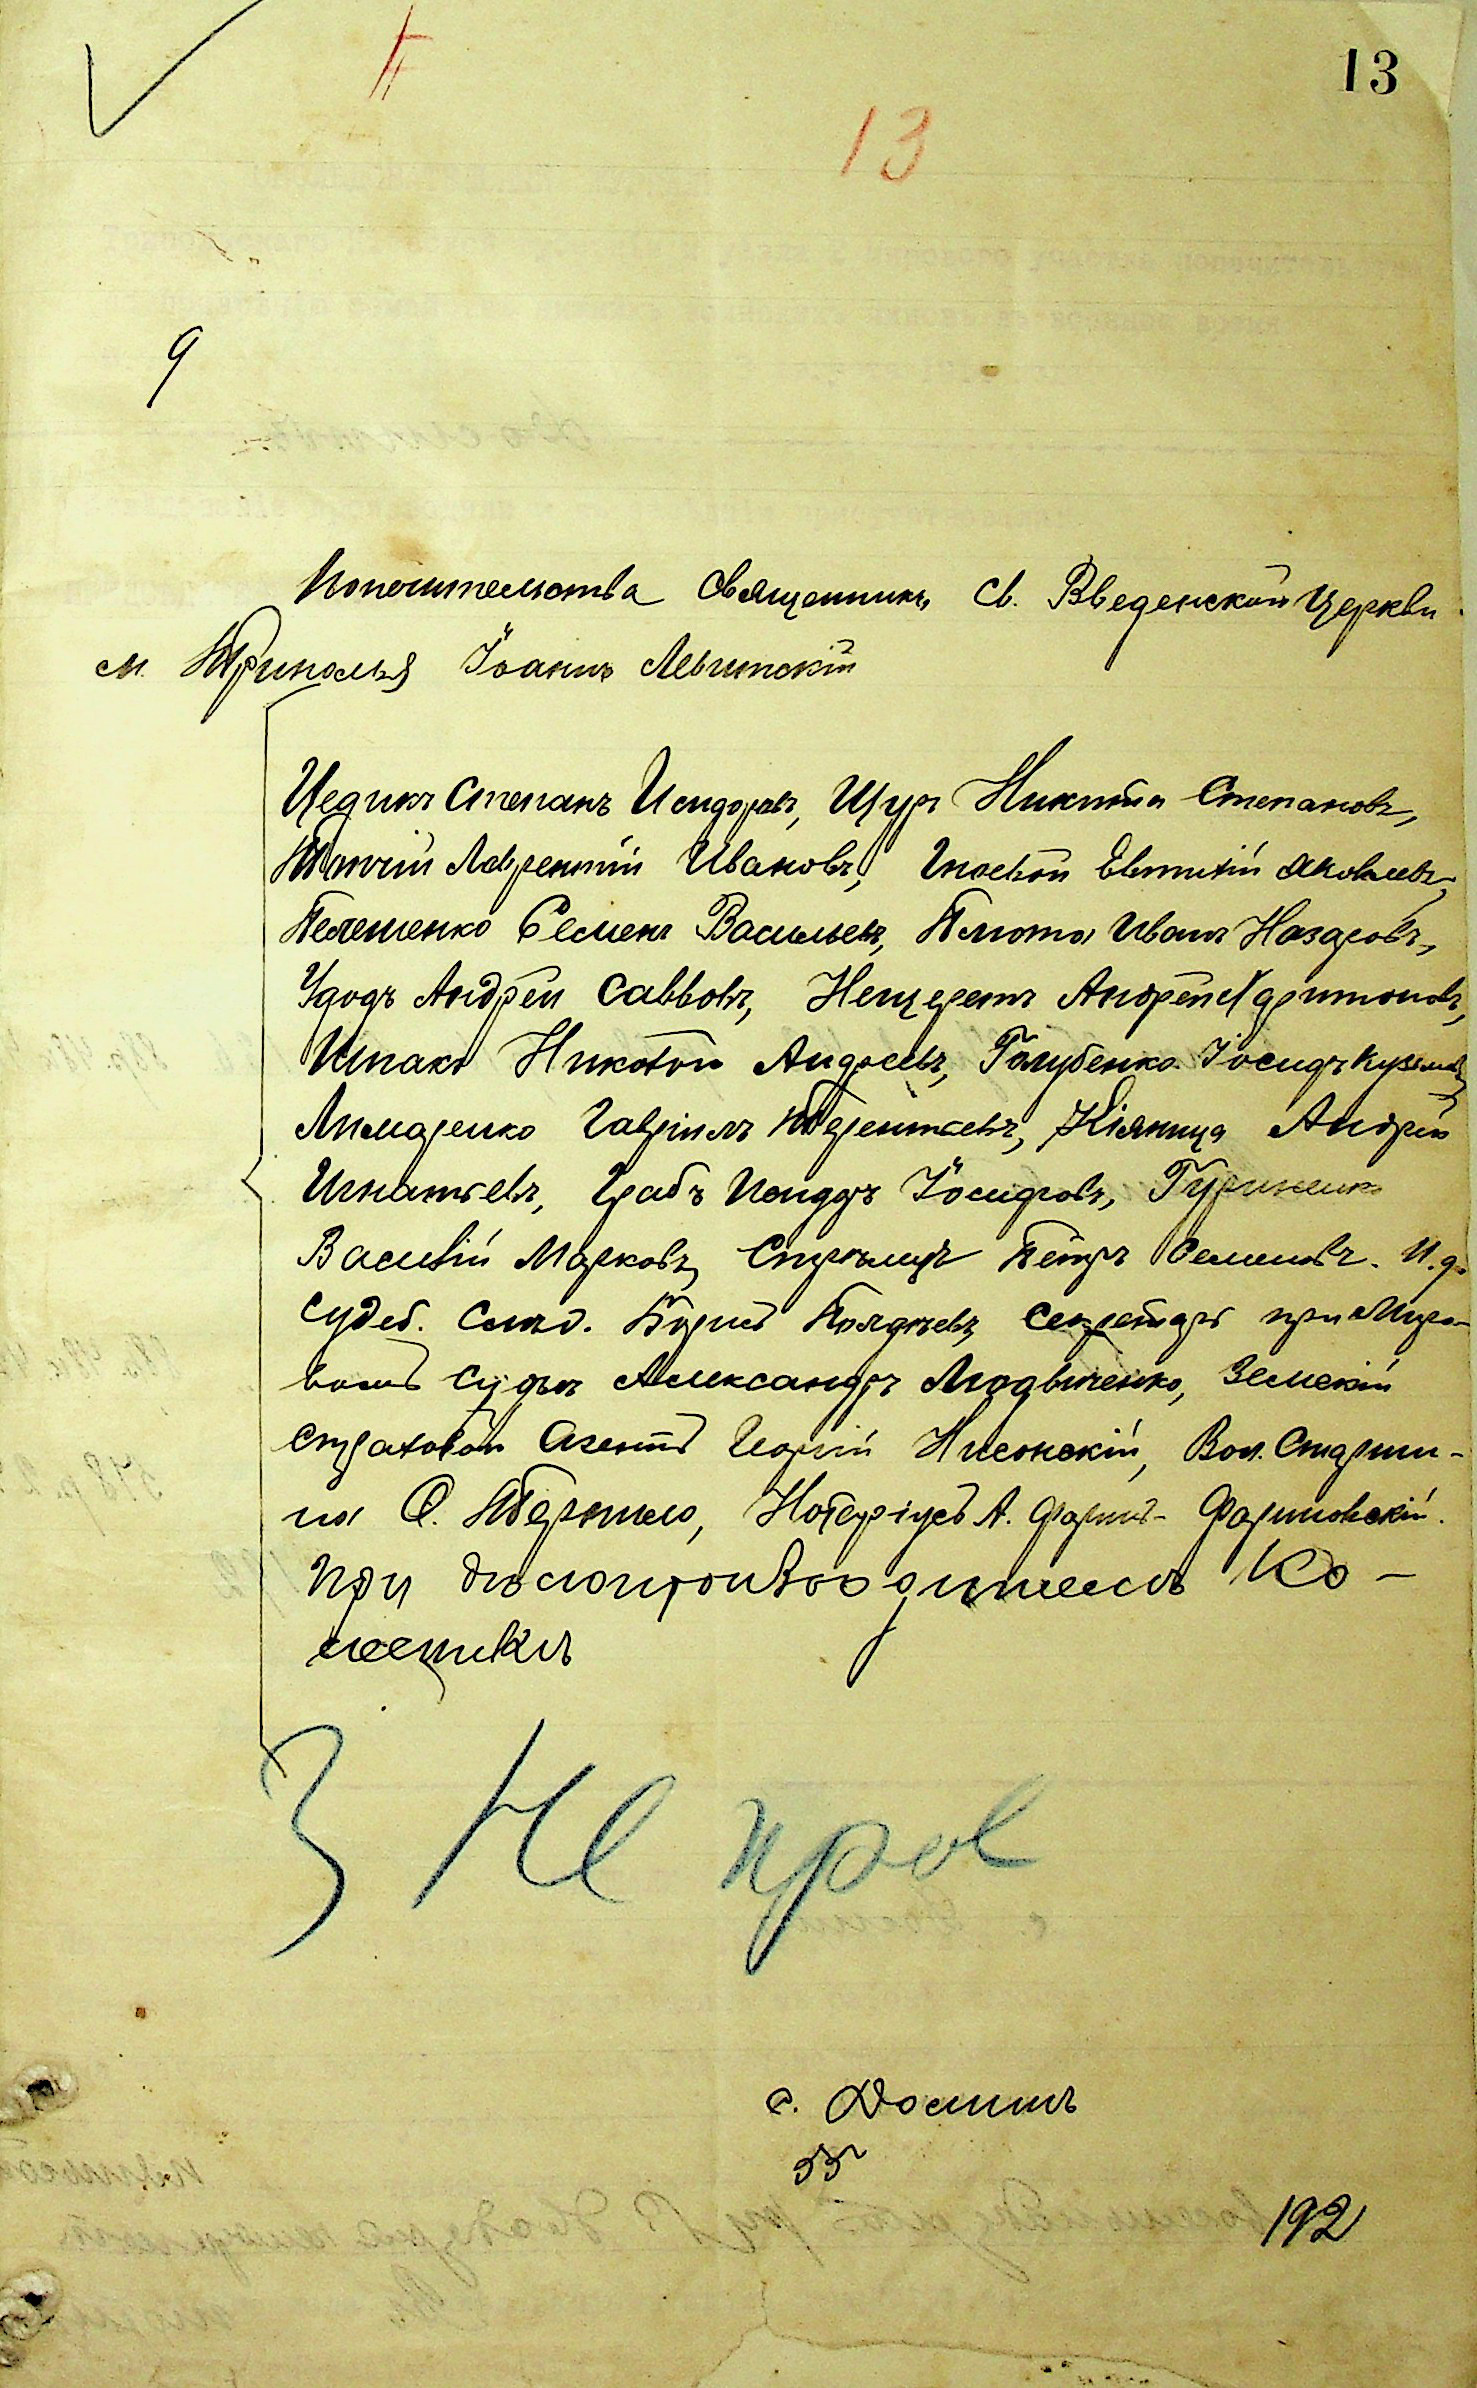 13
13
9
Попечительства Священникъ Св. Введенской Церкви
м. Триполья Іоаннъ Левитскій
Цедикъ Степанъ Исидоровъ, Щуръ Никита Степановъ,
Лаврентій Ивановъ, Евтихій Яковлевъ,
Пелешенко Семенъ Васильевъ, Плюта Иванъ Назаровъ,
Удодъ Андрей Саввовъ, Нещеретъ Андрей Харитоновъ,
Шпакъ Никофоръ Андреевъ, Голубенко Іосифъ Кузьмовъ
Лимаренко Гавріилъ Терентьевъ, Кіяница Андрей
Игнатьевъ, Грабъ Исидоръ Іосифовъ, Гуриненко
Василій Марковъ, Стрѣлецъ Петръ Семеновъ. И. д.
Судеб. Слѣд. Борисъ Секретарь при Миро-
вомъ Судьѣ Александръ Людвиченко, Земскій
Страховой Агентъ Нисонскій, Вол. Старши-
на Ѳ. Нотаріусъ А. Фаринъ- Фариновскій.
при дѣлопроизводителѣ Ко-
3 не пров
с. Долина
33
192